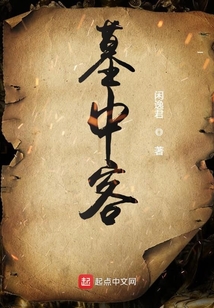 墓中客
闲逸君 ◎ 著
起点
起点中文网